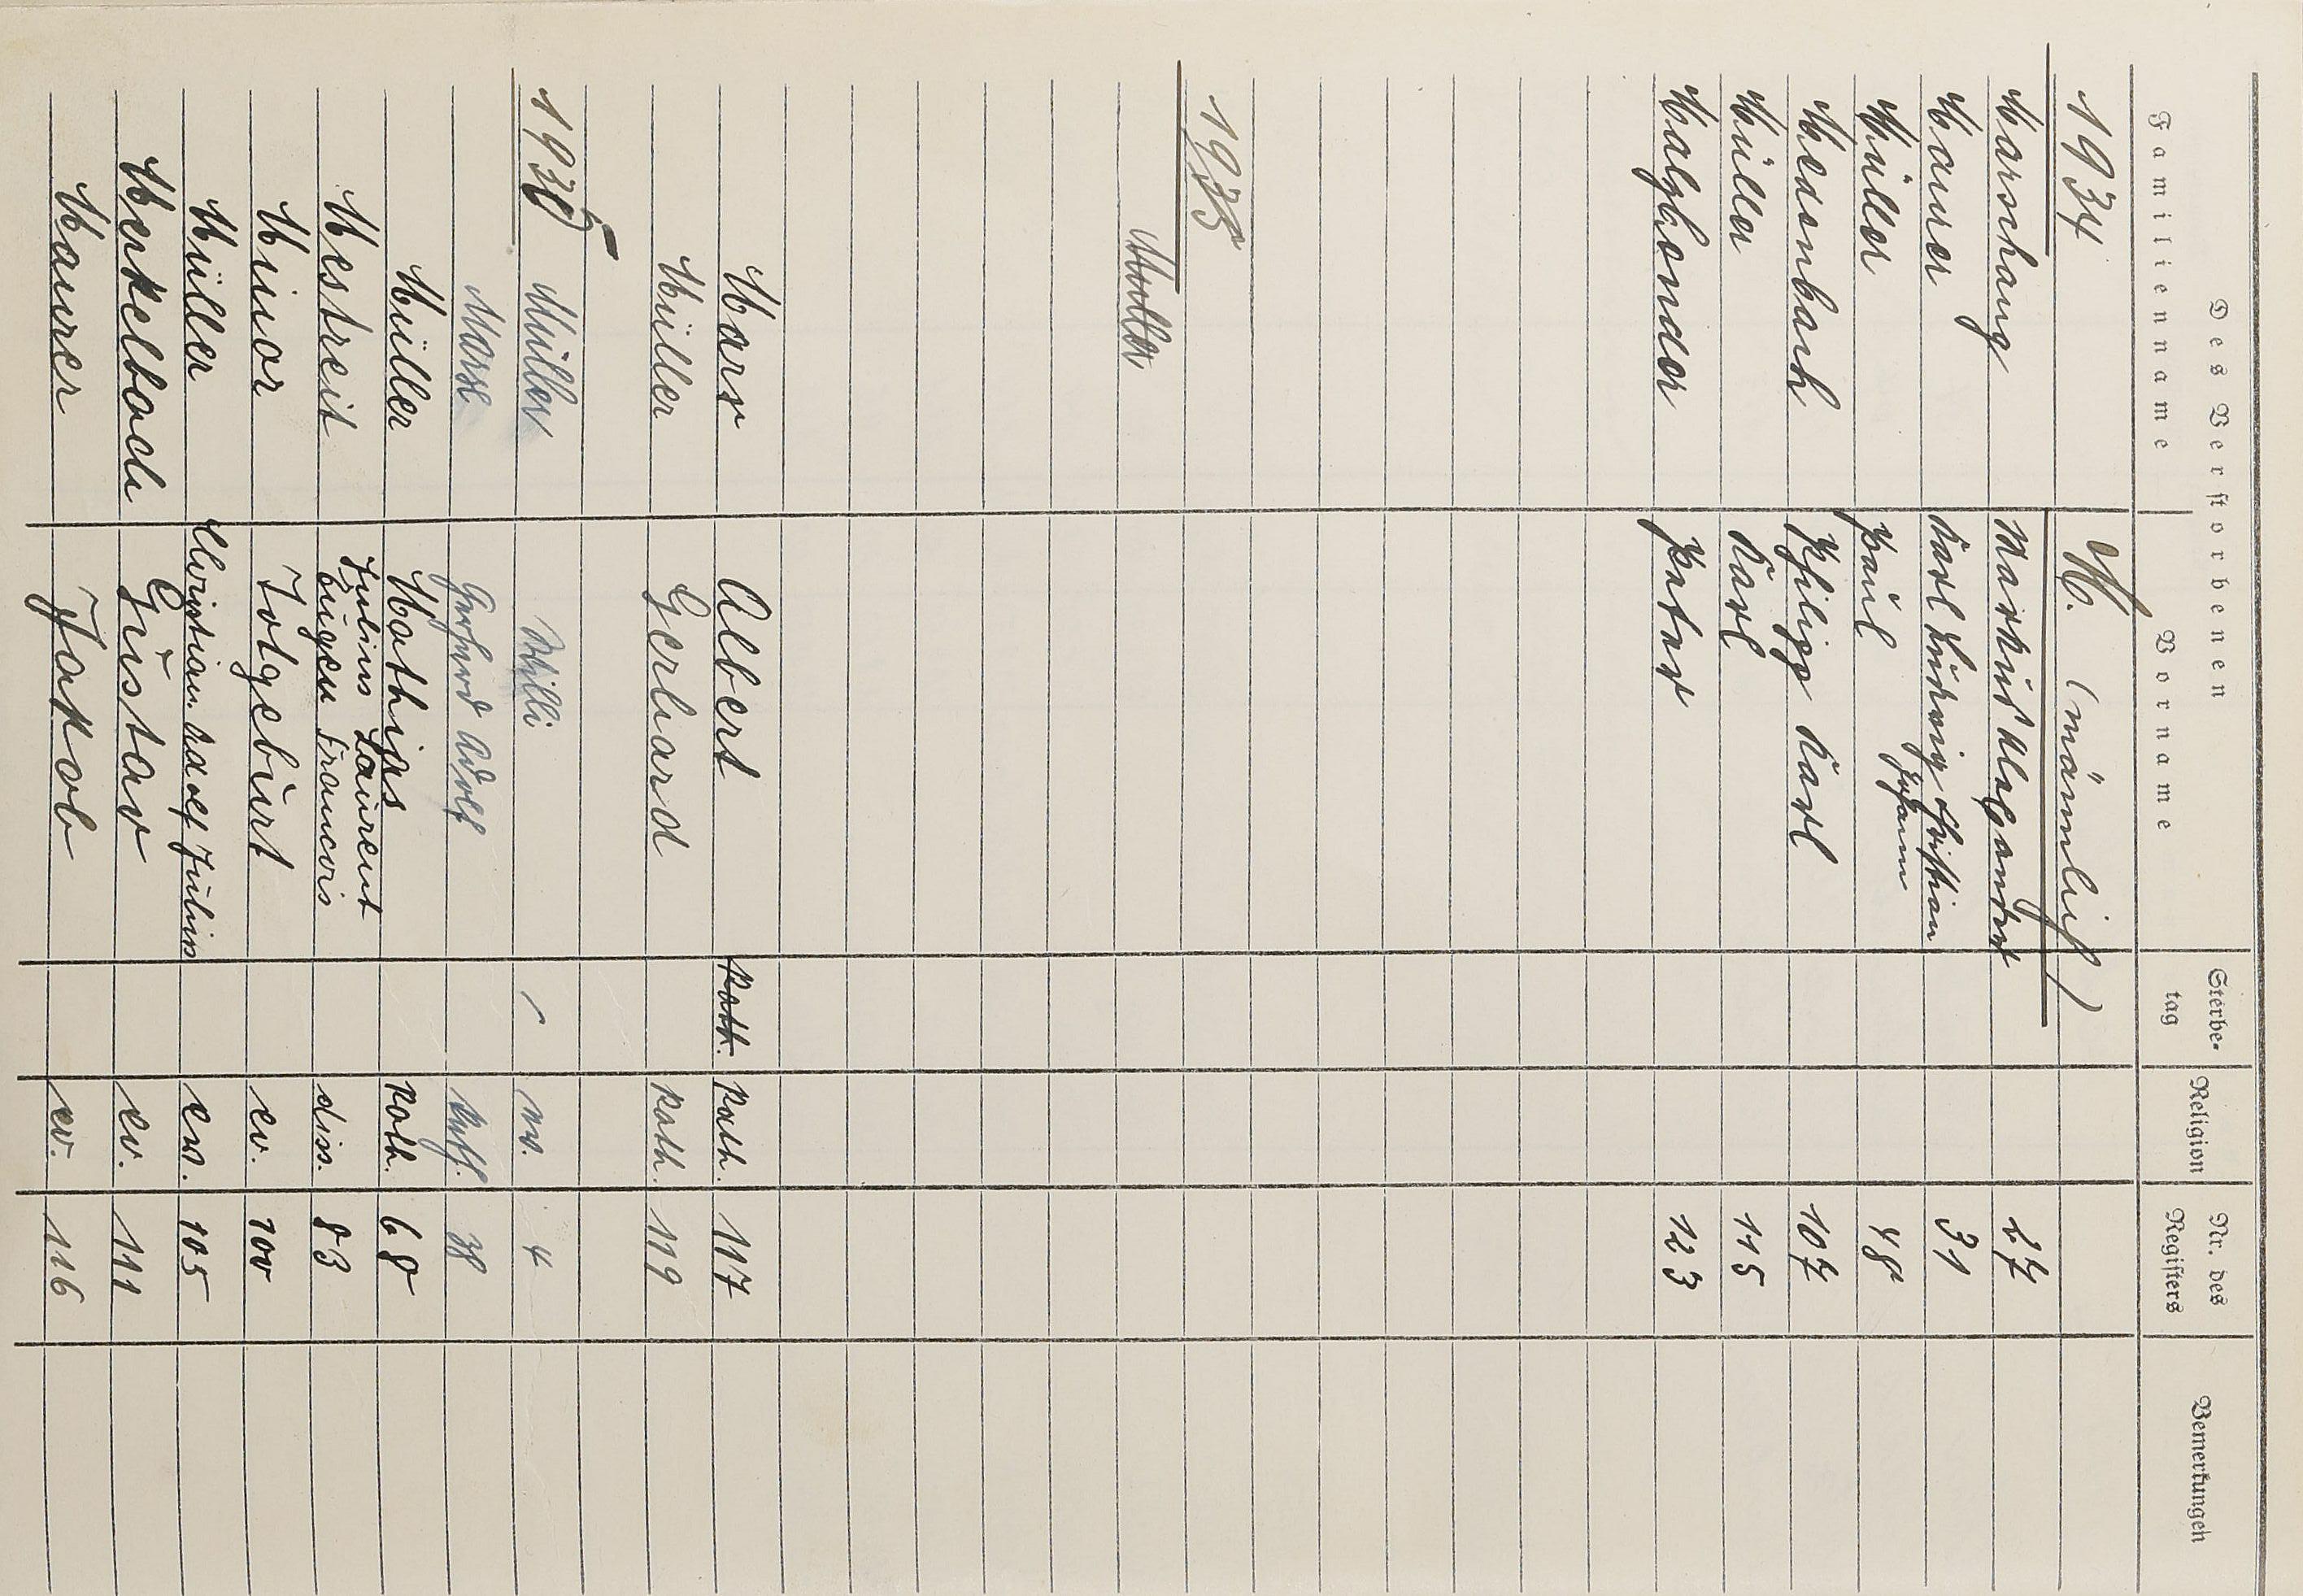 Des Verstorbenen
Familienname Vorname Sterbe-tag Religion Nr. des Registers Bemerkungen
1934 M. (männlich)
Marschang Markus Alexander 27
Maurer Karl Ludwig Christian 31
Müller Paul Johann 48
Medenbach Philipp Karl 107
Müller Karl 115
Malghender Peter 123
1935
Marx Albert kath. kath. 117
Müller Gerhard kath. 119
1935 Müller Willi ev. 4
Marx Gerhard Adolf kath. 38
Müller Mathias kath. 68
Mestreit Julius Laurent Eugen Francois diss. 83
Minor Totgeburt ev. 100
Müller Christian Adolf Julius ev. 105
Merkelbach Gustav ev. 111
Maurer Jakob ev. 116